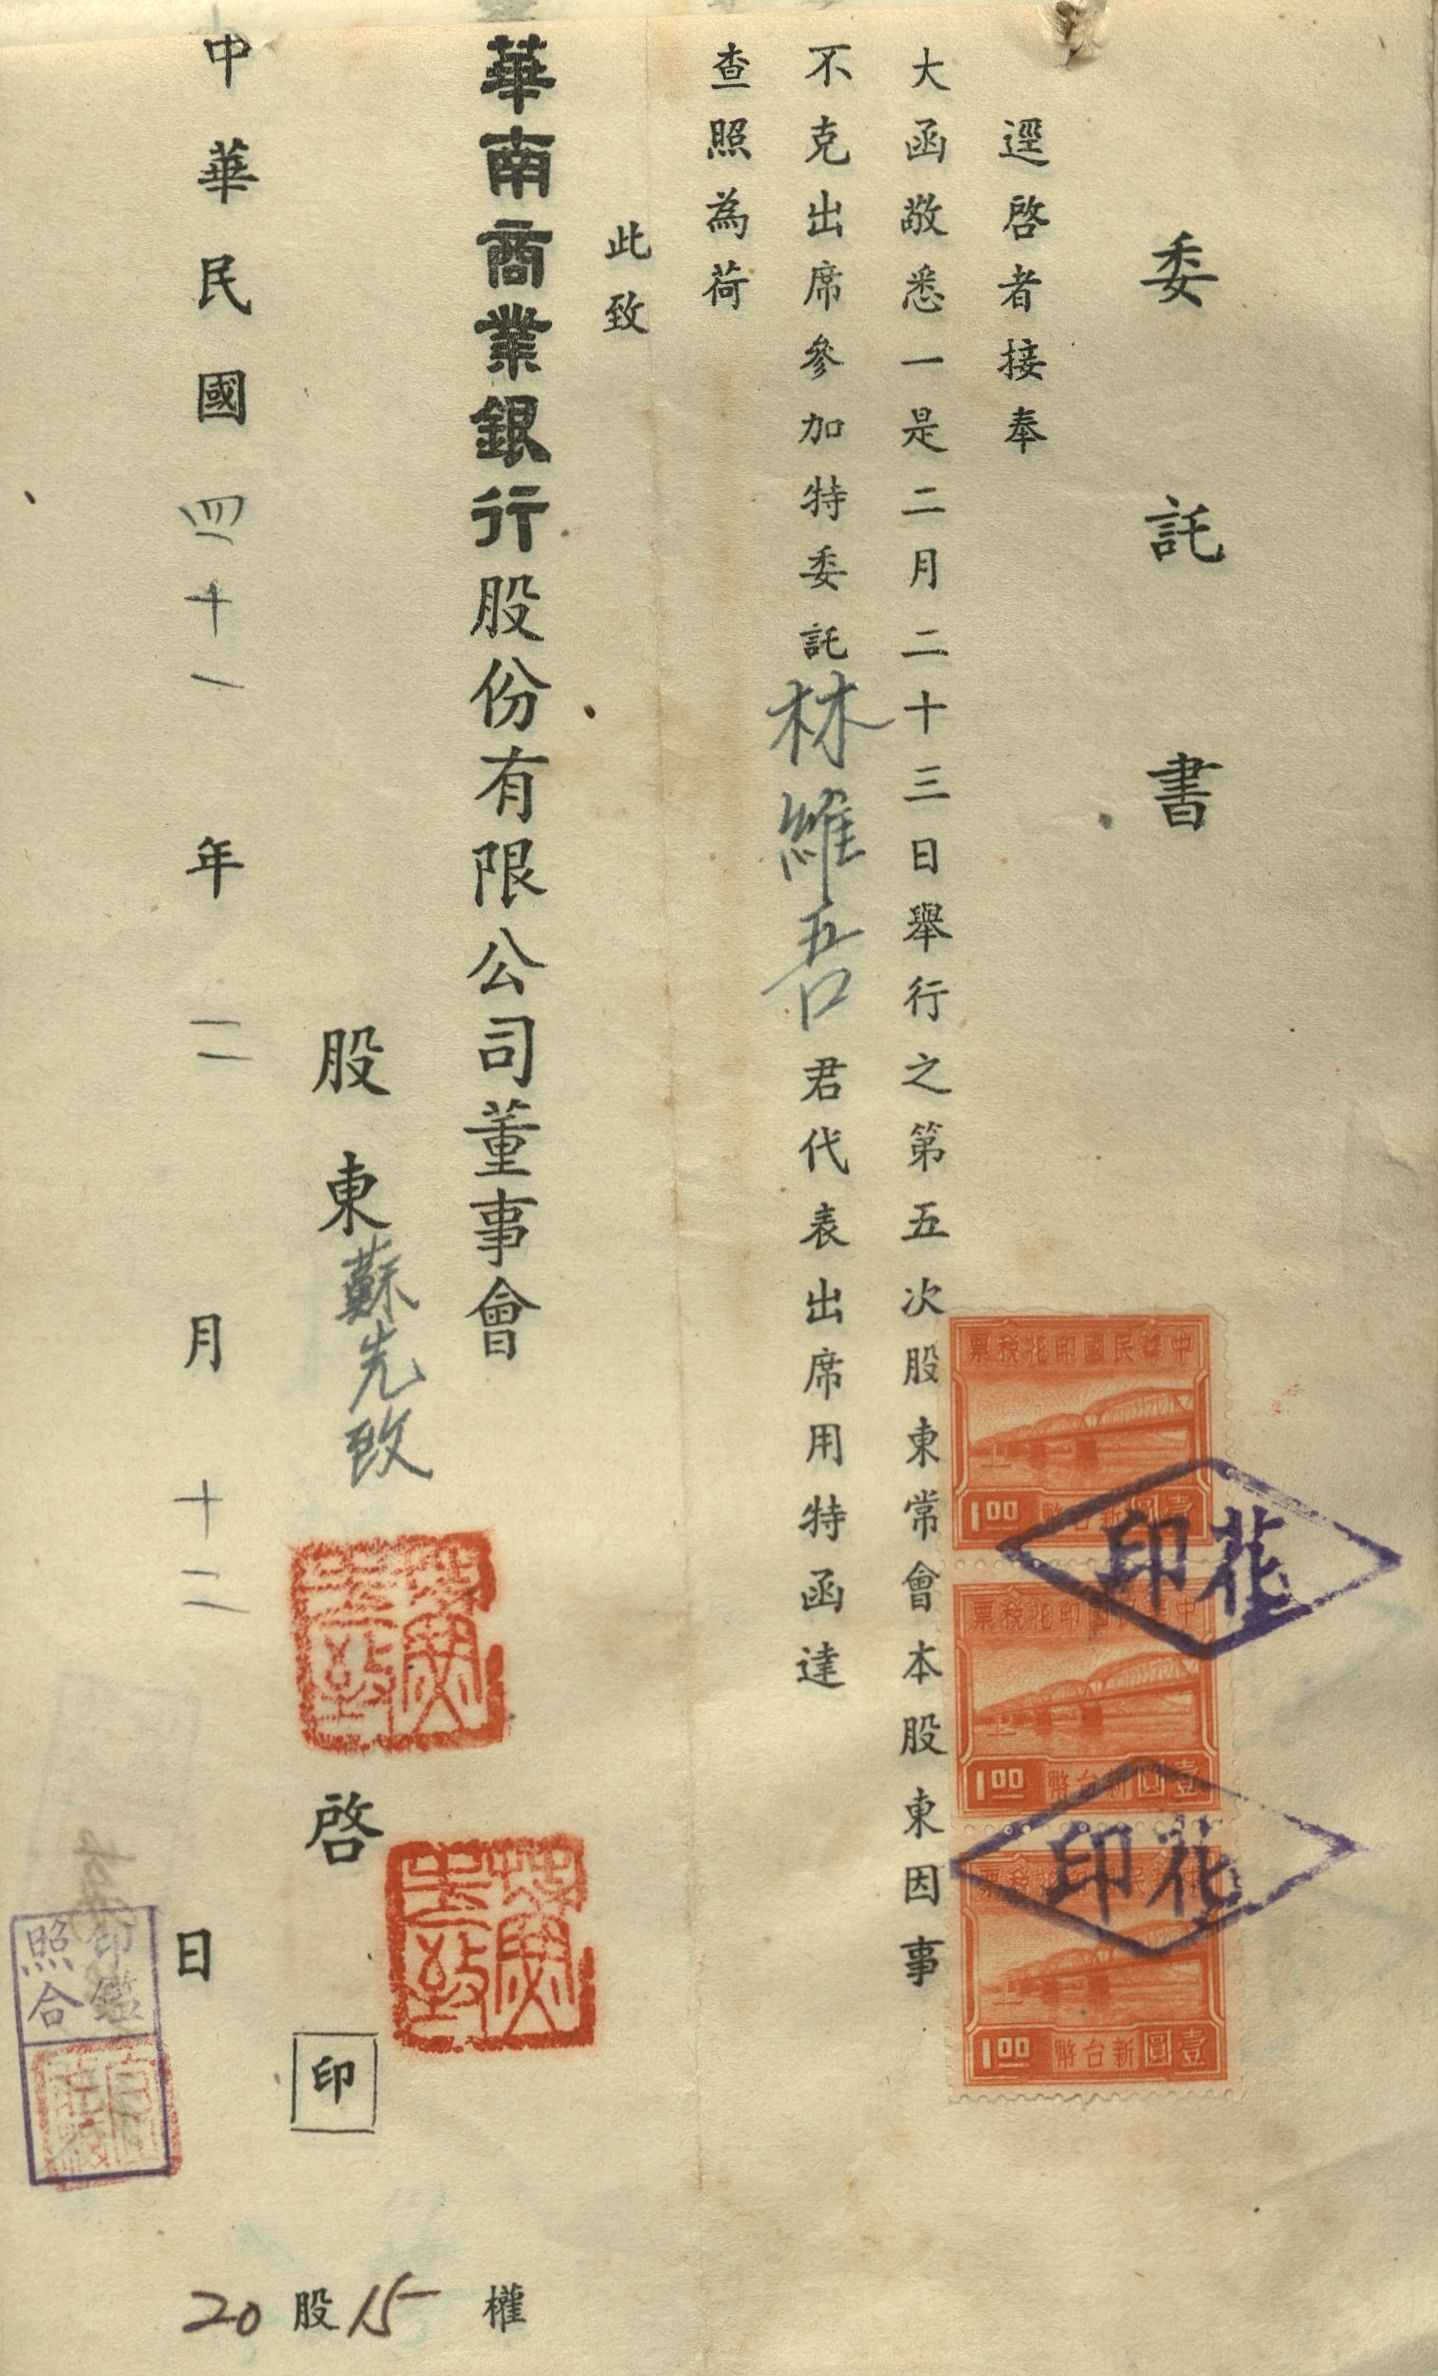 委託書
逕啓者接奉
大函敬悉一是二月二十三日舉行之第五次股東常會本股東因事
不克出席參加特委託林維吾君代表出席用特函達
查照為荷
此致
華南商業銀行股份有限公司董事會
股東蘇先致啓印
中華民國四十一年二月十二日
20股15權
中華民國印花稅票
1.00
新台幣壹圓
印花
中華民國印花稅票
1.00
新台幣壹圓
印花
1.00
新台幣壹圓
印鑑
照合